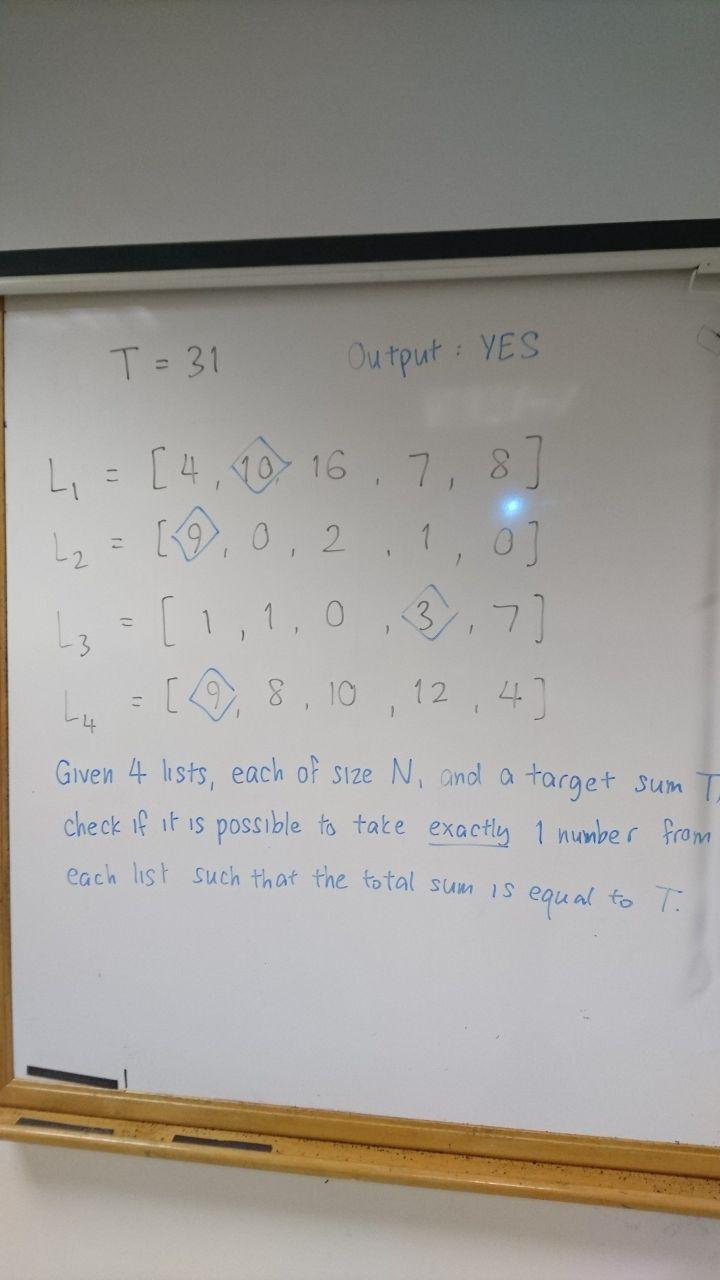 T = 31 Output : YES
L1 = [ 4, 10, 16, 7, 8 ]
L2 = [ 9, 0, 2, 1, 0 ]
L3 = [ 1, 1, 0, 3, 7 ]
L4 = [ 9, 8, 10, 12, 4 ]
Given 4 lists, each of size N, and a target sum T,
check if it is possible to take exactly 1 number from
each list such that the total sum is equal to T.